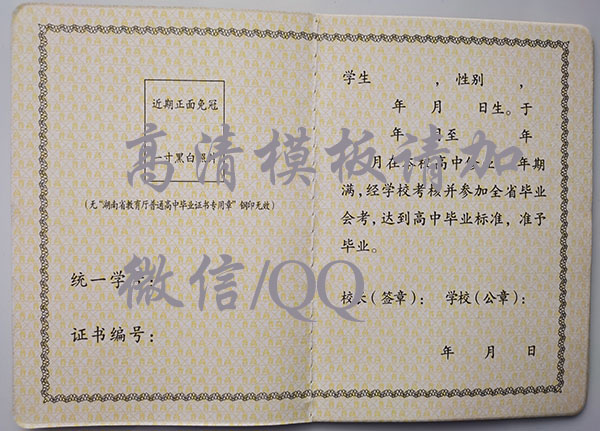 近期正面免冠
一寸黑白照片
(无“湖南省教育厅普通高中毕业证书专用章”钢印无效)
统一学号：
证书编号：
学生　　，性别　，
年　月　日生。于
年　月至　年
月在本校高中修业　年期
满，经学校考核并参加全省毕业
会考，达到高中毕业标准，准予
毕业。
校长(签章)：　学校(公章)：
年　月　日
高清模板请加
微信/QQ